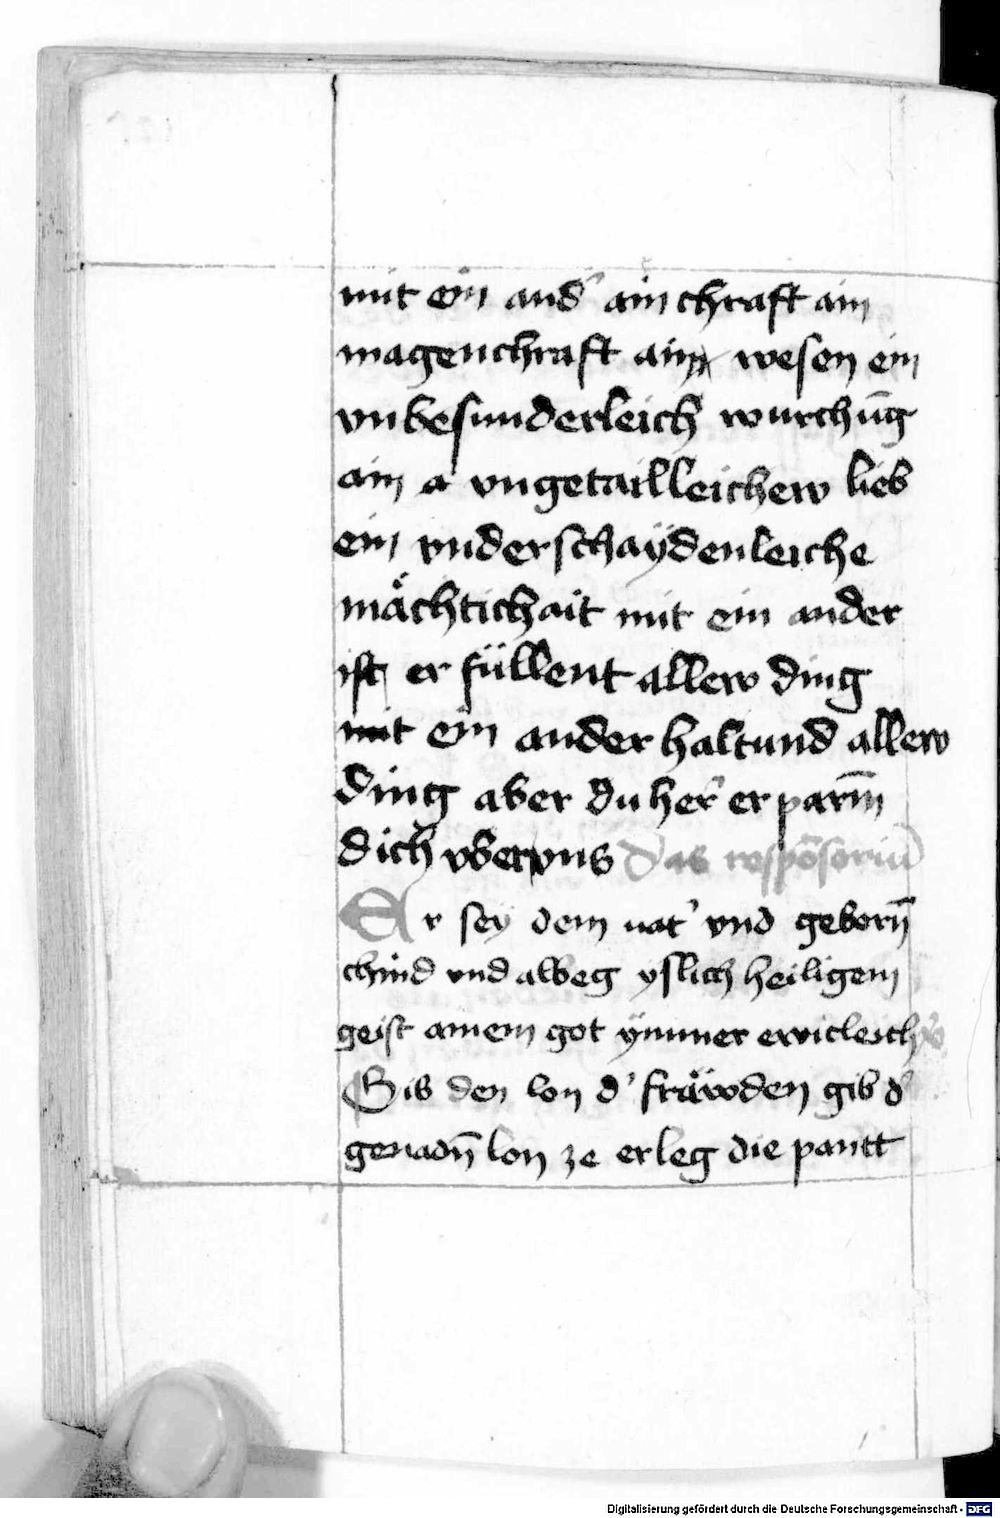 mit ein and' ain chraft ain
magenchraft ain wesen ein
vnbesunderleich wurchūg
ain a vngetailleichew lieb
ein vnderschaÿdenleiche
mächtichait mit ein ander
ist er füllent allew ding
mit ein ander haltund allew
ding aber du her' er parm̄
dich vber vns Das respōsoriū
Er sey dem vat' vnd geborn̄
chind vnd albeg yslich heiligem
geist amem got ÿmmer ewicleich
Gib den lon d' fräwden gib d'
genadn̄ lon ze erleg die pantt
Digitalisierung gefördert durch die Deutsche Forschungsgemeinschaft - DFG